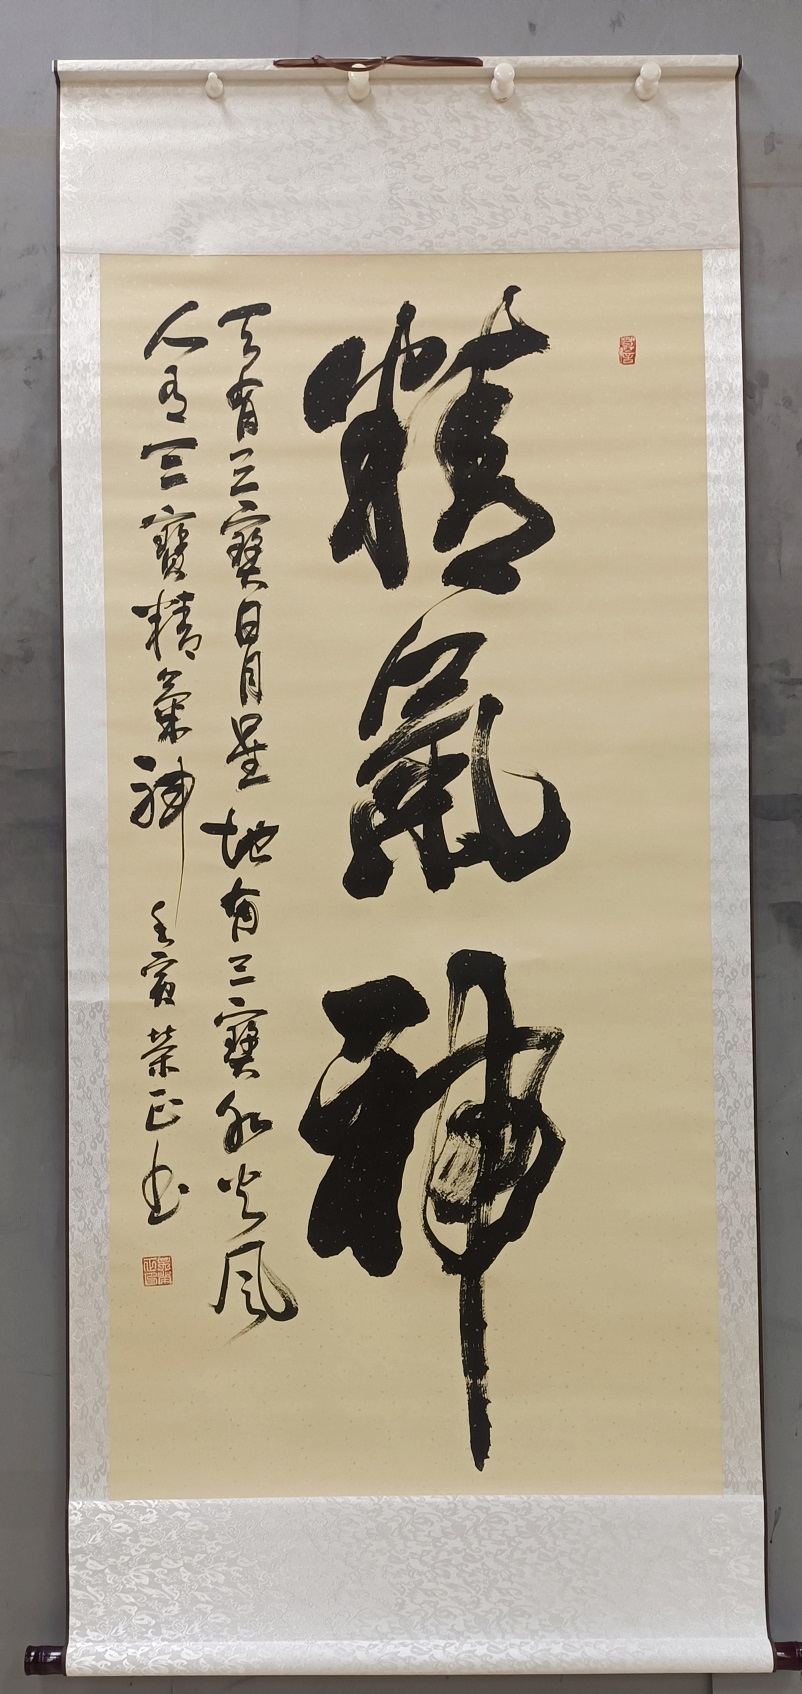 精氣神
天有三寶日月星地有三寶水火風
人有三寶精氣神 壬寅榮正書